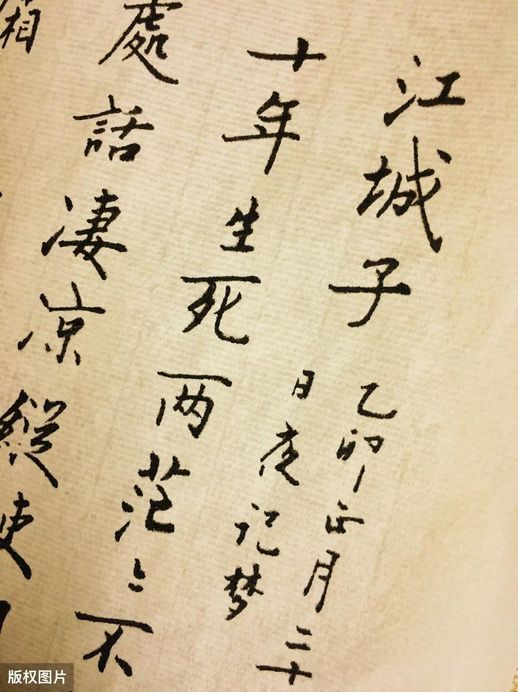 江城子
乙卯正月二十
日夜记梦
十年生死两茫々不
處話凄凉縱使
版权图片